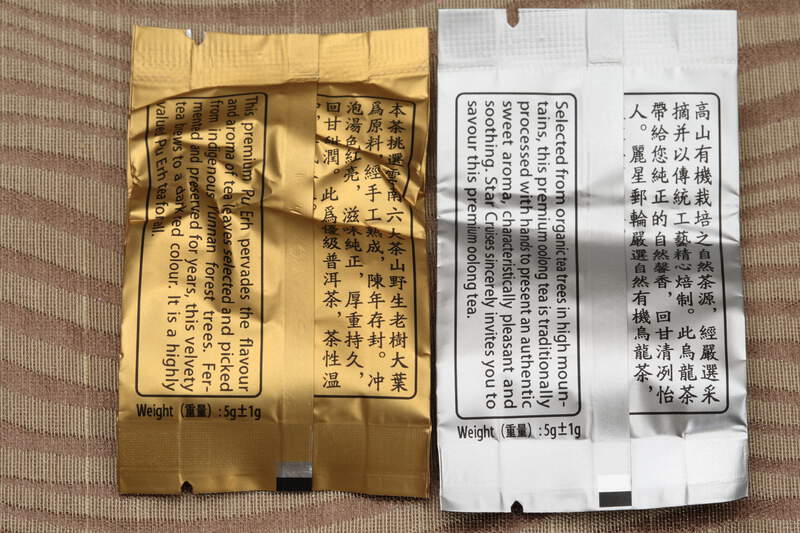 This premium Pu Erh pervades the flavour
and aroma of tea leaves selected and picked
from indigenous Yunnan forest trees. Fer-
mented and preserved for years, this velvety
tea to a colour. It is a highly
value Pu Erh tea to all.
本茶挑選雲南六大茶山野生老樹大葉
爲原料，經手工熟成，陳年存封。冲
泡湯色紅亮，滋味純正，厚重持久，
回甘甜潤。此爲優級普洱茶，茶性温
Weight (重量) : 5g±1g
Selected from organic tea trees in high moun-
tains, this premium oolong tea is traditionally
processed with hands to present an authentic
sweet aroma, characteristically pleasant and
soothing. Star Cruises sincerely invites you to
savour this premium oolong tea.
高山有機栽培之自然茶源，經嚴選采
摘并以傳統工藝精心焙制。此烏龍茶
帶給您純正的自然馨香，回甘清冽怡
人。麗星郵輪嚴選自然有機烏龍茶，
Weight (重量) : 5g±1g